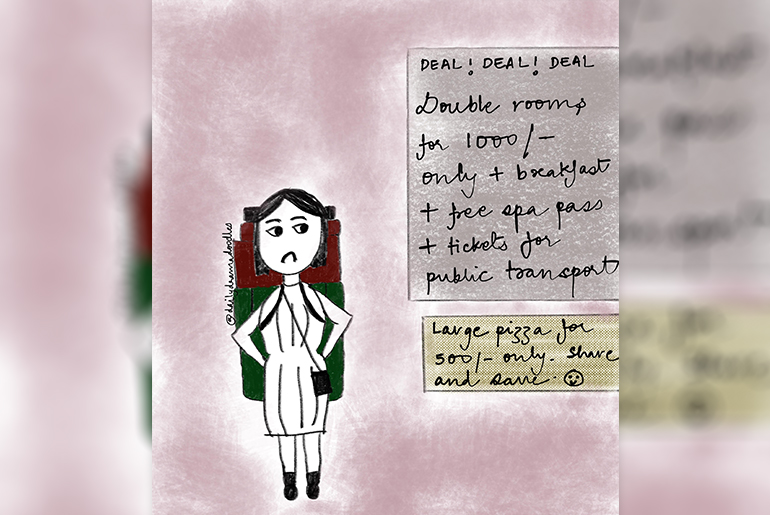 DEAL! DEAL! DEAL
Double rooms
for 1000/-
only + breakfast
+ free spa pass
+ tickets for
public transport
Large pizza for
500/- only. Share
and save.
@dailydramedoodles